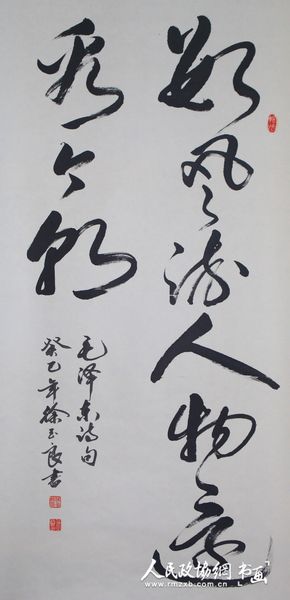 数风流人物还
看今朝
毛泽东诗句
癸巳年徐玉良书
人民政協網 书画
www.rmzxb.com.cn/shuhua/